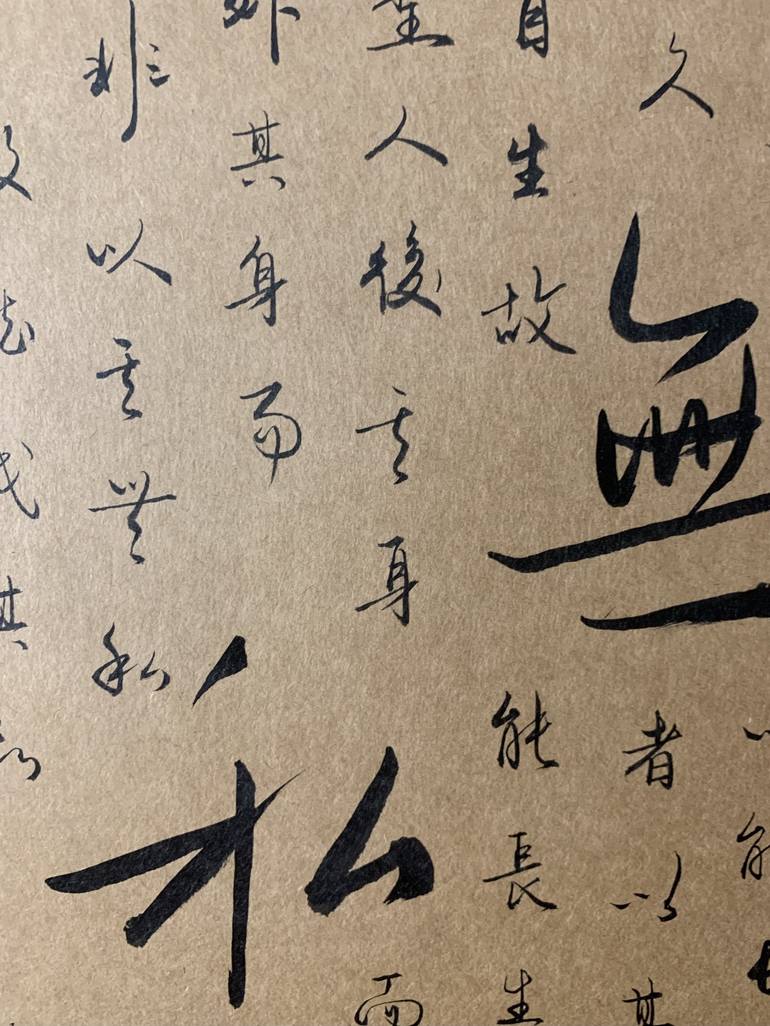 久者以其
自生故能長生
聖人後其身而
外其身而
非以其無私
故能成其私
無私